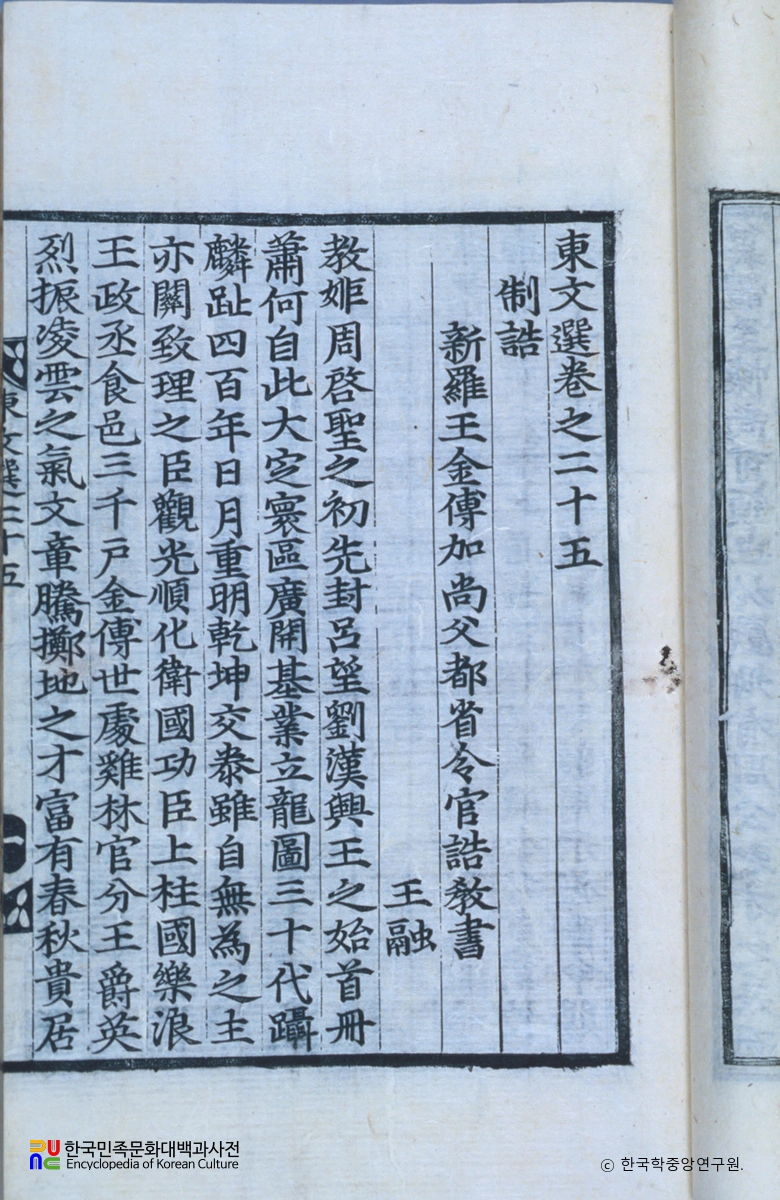 東文選卷之二十五
制誥
新羅王金傅加尚父都省令官誥敎書
王融
敎姬周啓聖之初先封呂望劉漢興王之始首冊
蕭何自此大定寰區廣開基業立龍圖三十代躡
麟趾四百年日月重明乾坤交泰雖自無為之主
亦關致理之臣觀光順化衛國功臣上柱國樂浪
王政丞食邑三千戶金傅世處雞林官分王爵英
烈振凌雲之氣文章騰擲地之才富有春秋貴居
東文選二十五
一
한국민족문화대백과사전
Encyclopedia of Korean Culture
ⓒ 한국학중앙연구원.